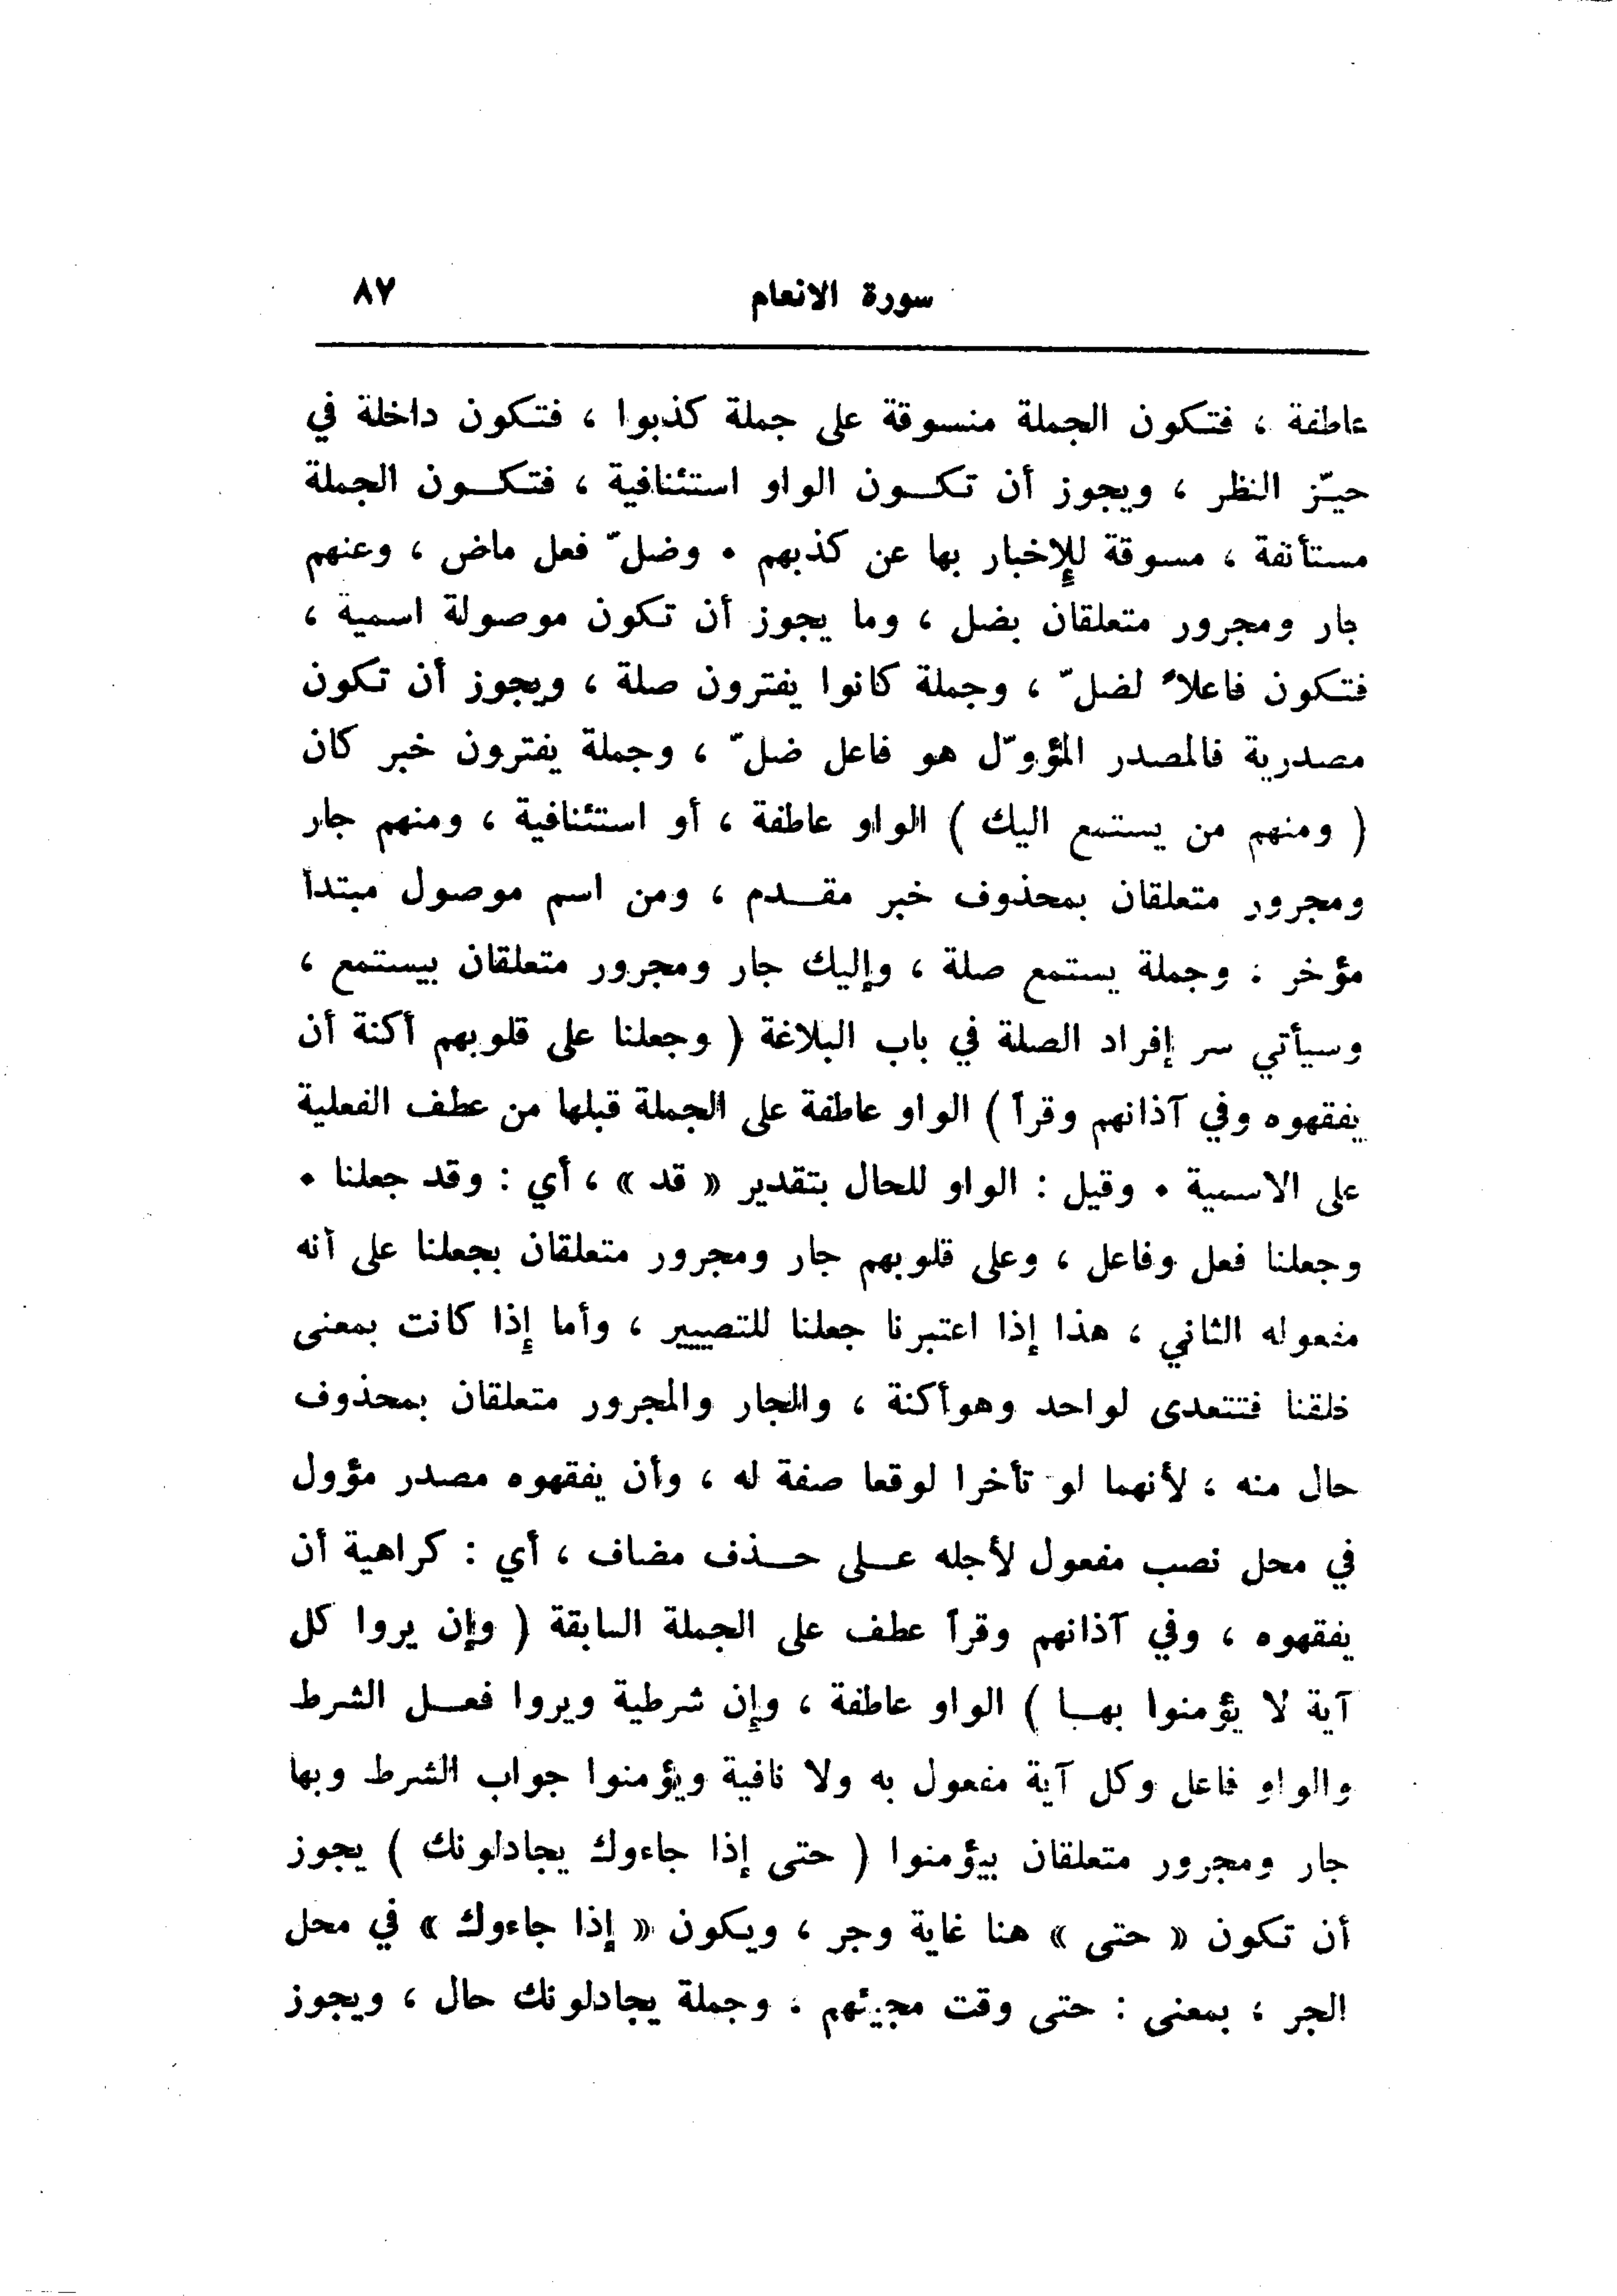 سورة الانعام ٨٧
عاطفة ، فتكون الجملة منسوقة على جملة كذبوا ، فتكون داخلة في
حيّز النظر ، ويجوز أن تكون الواو استئنافية ، فتكون الجملة
مستأنفة ، مسوقة للإخبار بها عن كذبهم . وضلّ فعل ماض ، وعنهم
جار ومجرور متعلقان بضل ، وما يجوز أن تكون موصولة اسمية ،
فتكون فاعلاً لضلّ ، وجملة كانوا يفترون صلة ، ويجوز أن تكون
مصدرية فالمصدر المؤوّل هو فاعل ضلّ ، وجملة يفترون خبر كان
( ومنهم من يستمع اليك ) الواو عاطفة ، أو استئنافية ، ومنهم جار
ومجرور متعلقان بمحذوف خبر مقدم ، ومن اسم موصول مبتدأ
مؤخر ، وجملة يستمع صلة ، وإليك جار ومجرور متعلقان بيستمع ،
وسيأتي سر إفراد الصلة في باب البلاغة ( وجعلنا على قلوبهم أكنة أن
يفقهوه وفي آذانهم وقرأ ) الواو عاطفة على الجملة قبلها من عطف الفعلية
على الاسمية . وقيل : الواو للحال بتقدير « قد » ، أي : وقد جعلنا .
وجعلنا فعل وفاعل ، وعلى قلوبهم جار ومجرور متعلقان بجعلنا على أنه
مفعوله الثاني ، هذا إذا اعتبرنا جعلنا للتصيير ، وأما إذا كانت بمعنى
خلقنا فتتعدى لواحد وهوأكنة ، والجار والمجرور متعلقان بمحذوف
حال منه ، لأنهما لو تأخرا لوقعا صفة له ، وأن يفقهوه مصدر مؤول
في محل نصب مفعول لأجله على حذف مضاف ، أي : كراهية أن
يفقهوه ، وفي آذانهم وقرأ عطف على الجملة السابقة ( وإن يروا كل
آية لا يؤمنوا بها ) الواو عاطفة ، وإن شرطية ويروا فعل الشرط
والواو فاعل وكل آية مفعول به ولا نافية ويؤمنوا جواب الشرط وبها
جار ومجرور متعلقان بيؤمنوا ( حتى إذا جاءوك يجادلونك ) يجوز
أن تكون « حتى » هنا غاية وجر ، ويكون « إذا جاءوك » في محل
الجر ، بمعنى : حتى وقت مجيئهم ، وجملة يجادلونك حال ، ويجوز